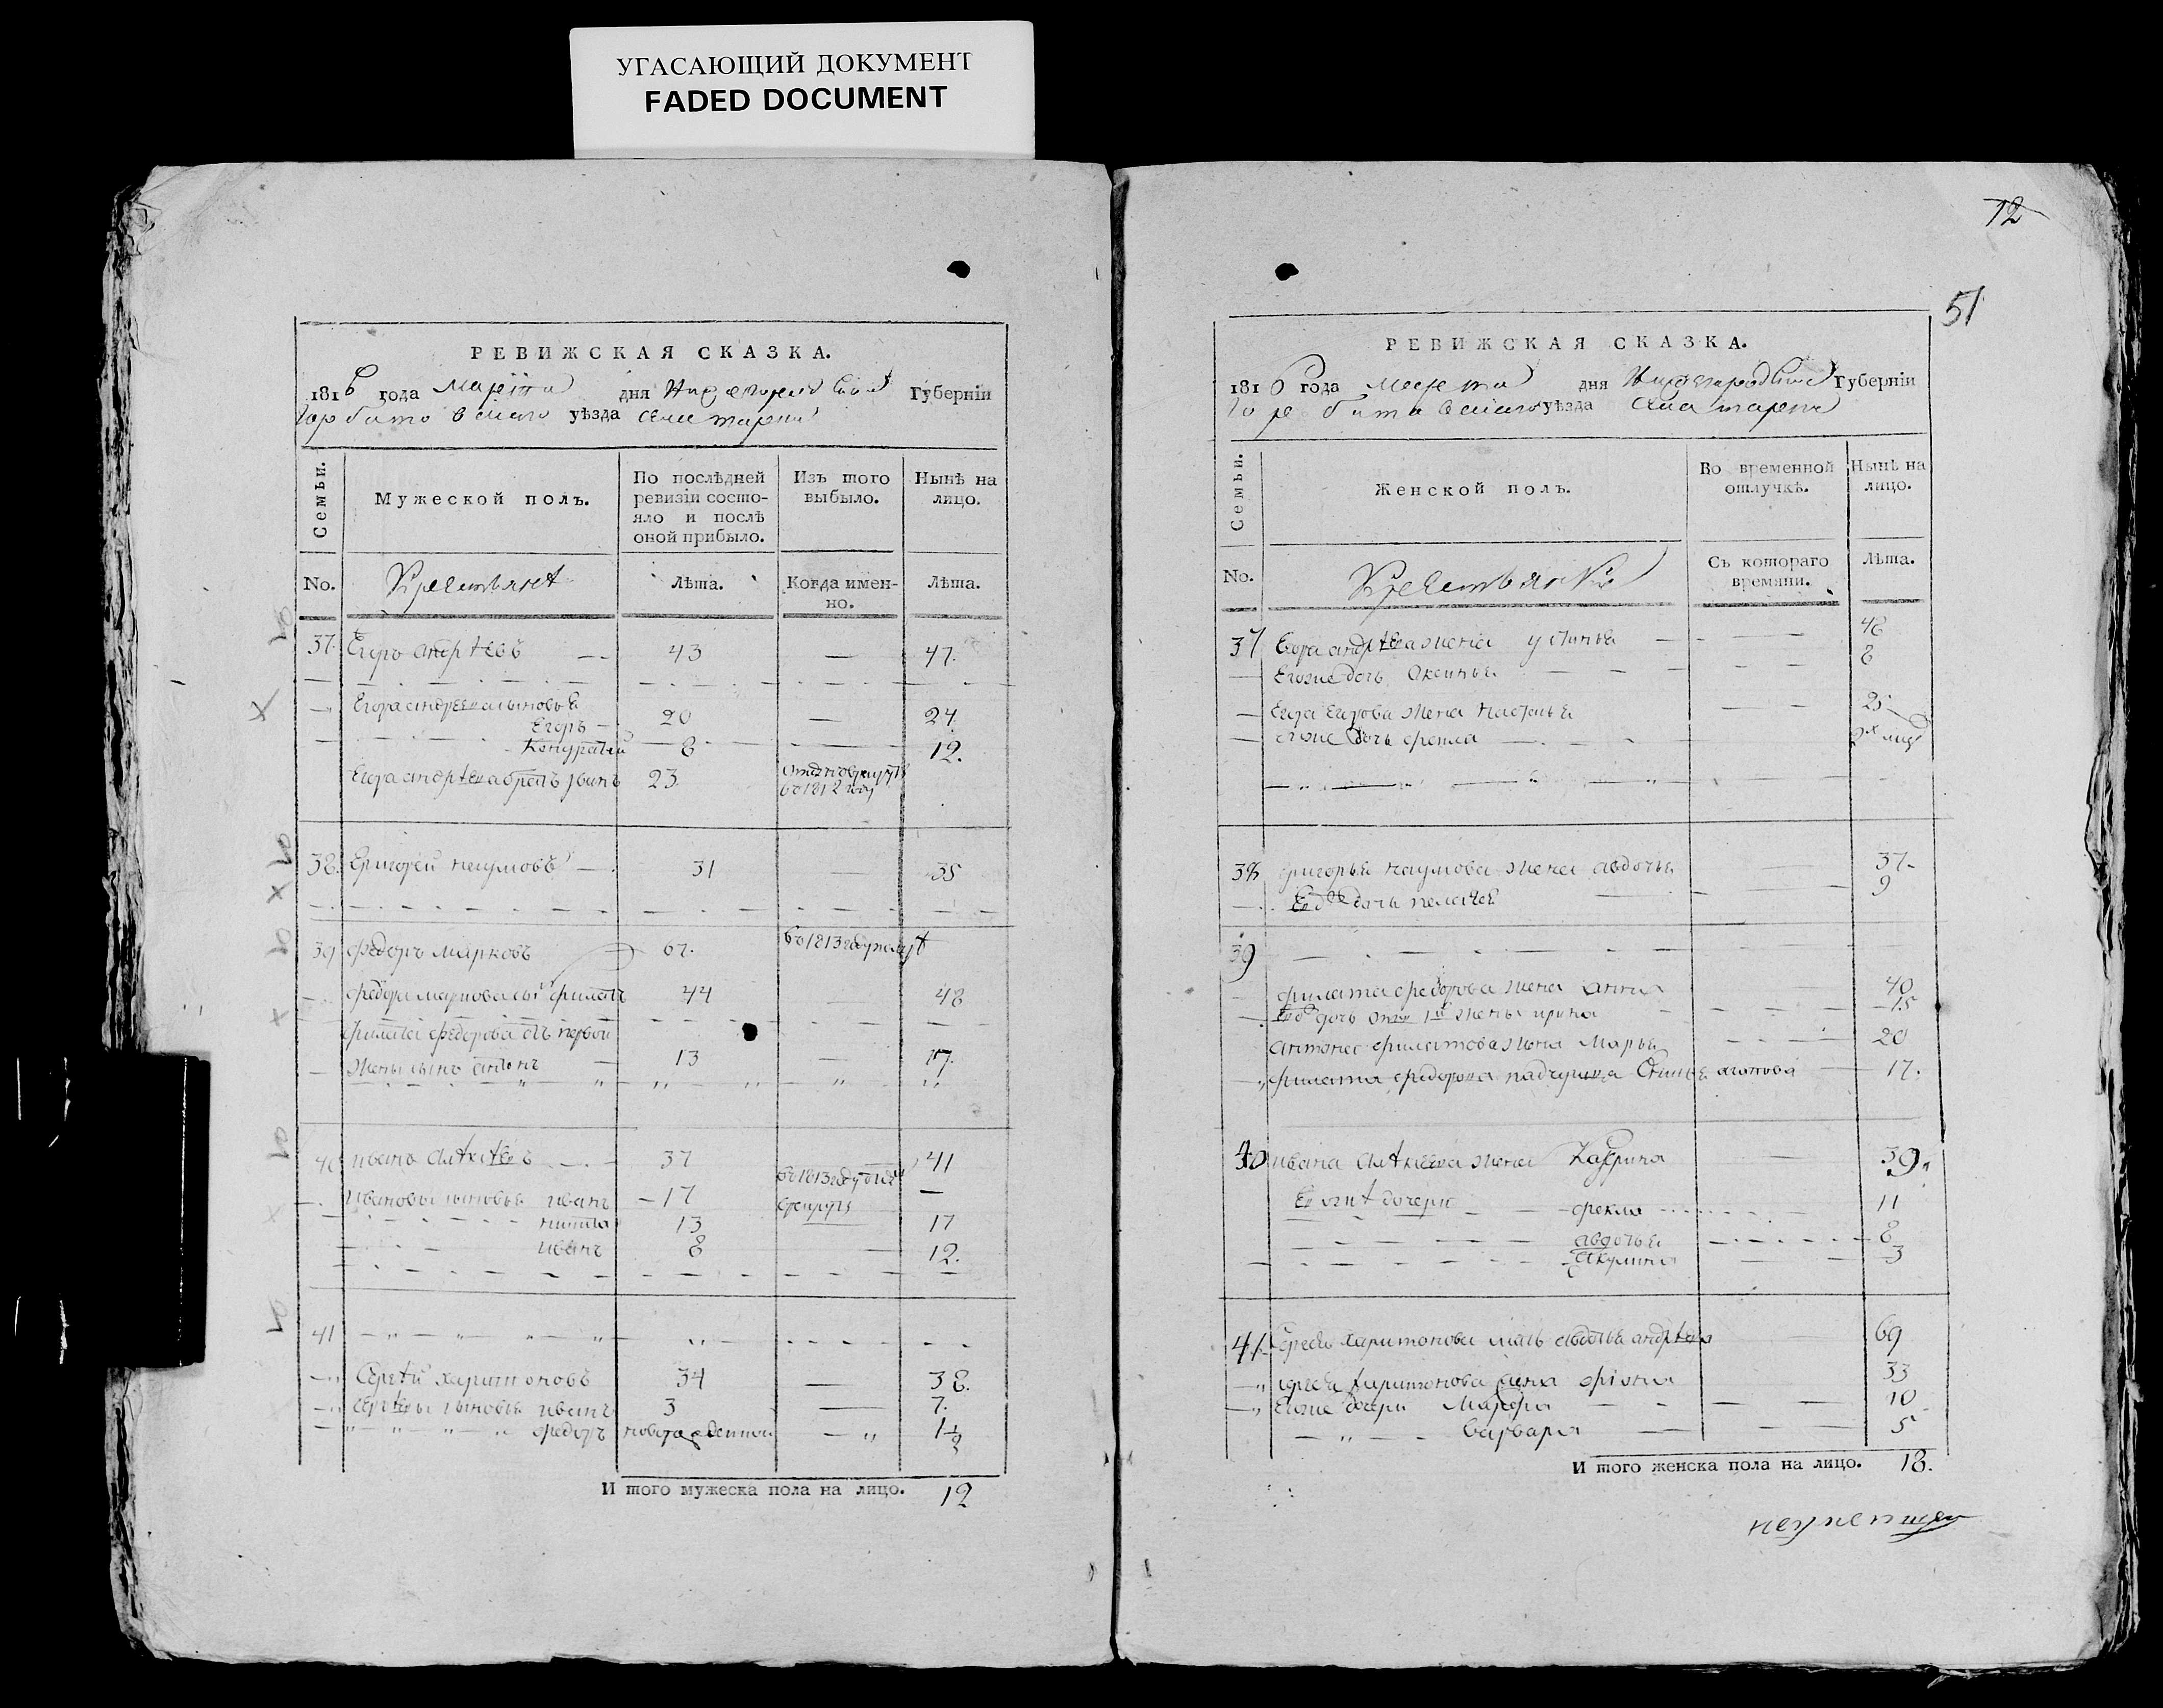 УГАСАЮЩИЙ ДОКУМЕНТ
FADED DOCUMENT
РЕВИЖСКАЯ СКАЗКА.
1816 года Марта дня Нижегородской Губернїи
Горбатовскаго уѣзда
Семьи.
Мужеской полъ.
По послѣдней ревизїи состояло и послѣ оной прибыло.
Изъ того выбыло.
Нынѣ на лицо.
No.
Крестьяне
Лѣта.
Когда именно.
Лѣта.
37. Егоръ андрѣевъ 43 — 47.
Егора андреева сыновья
Егоръ 20 — 24.
Кондратей 8 12.
Егора андрѣева братъ 23 отданъ в рекруты
в 1812 году
38. Григорей наумовъ 31 — 35
39 федоръ марковъ 67. в 1813 году
федора маркова сынъ филатъ 44 — 48
филата федорова отъ первой
жены сынъ антонъ 13 — 17.
40 иванъ алѣксѣевъ 37 41
Ивановы сыновья иванъ 17 в 1813 году —
никита 13 17
иванъ 8 — 12.
41
Сергѣй харитоновъ 34 — 38.
Сергѣевы сыновья иванъ 3 — 7.
федоръ новорожденной 1 1/2
И того мужеска пола на лицо. 12
72
51
РЕВИЖСКАЯ СКАЗКА.
1816 года Марта дня Нижегородской Губернїи
Горбатовскаго уѣзда
Семьи.
Женской полъ.
Во временной отлучкѣ.
Нынѣ на лицо.
No.
Крестьянки
Съ котораго времяни.
Лѣта.
37 Егора андрѣева жена устинья 48
Егоже дочь Аксинья 8
Егора Егорова жена настасья 25
егоже дочь фекла
38 григорья наумова жена авдотья 37
Ево дочь пелагея 9
39
филата федорова жена анна 40
Ево дочь отъ 1й жены ирина 15
антона филатова жена Марья 20
филата федорова падчерица 17.
40 ивана алѣксѣева жена Катрина 39.
Ево же дочери фекла 11
авдотья 8
Акулина 3
41. Сергея харитонова мать андрѣева 69
сергея харитонова жена 33
Егоже дочери Марфа 10
варвара 5
И того женска пола на лицо. 18.